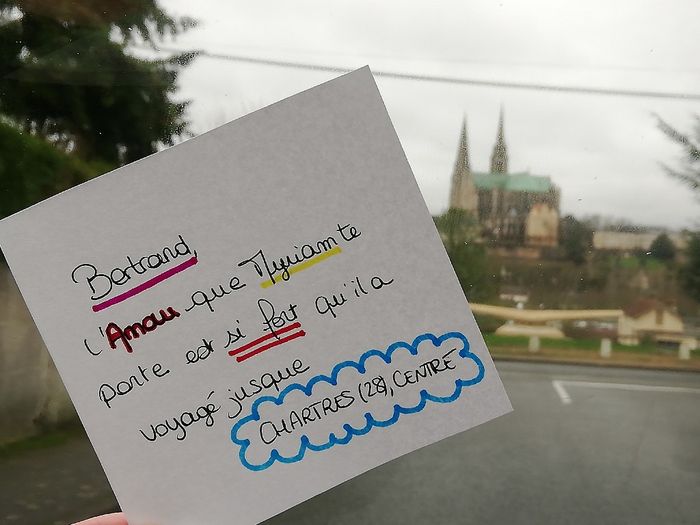 Bertrand,
L'Amour que Myriam te
porte est si fort qu'il a
voyagé jusque
CHARTRES (28), CENTRE